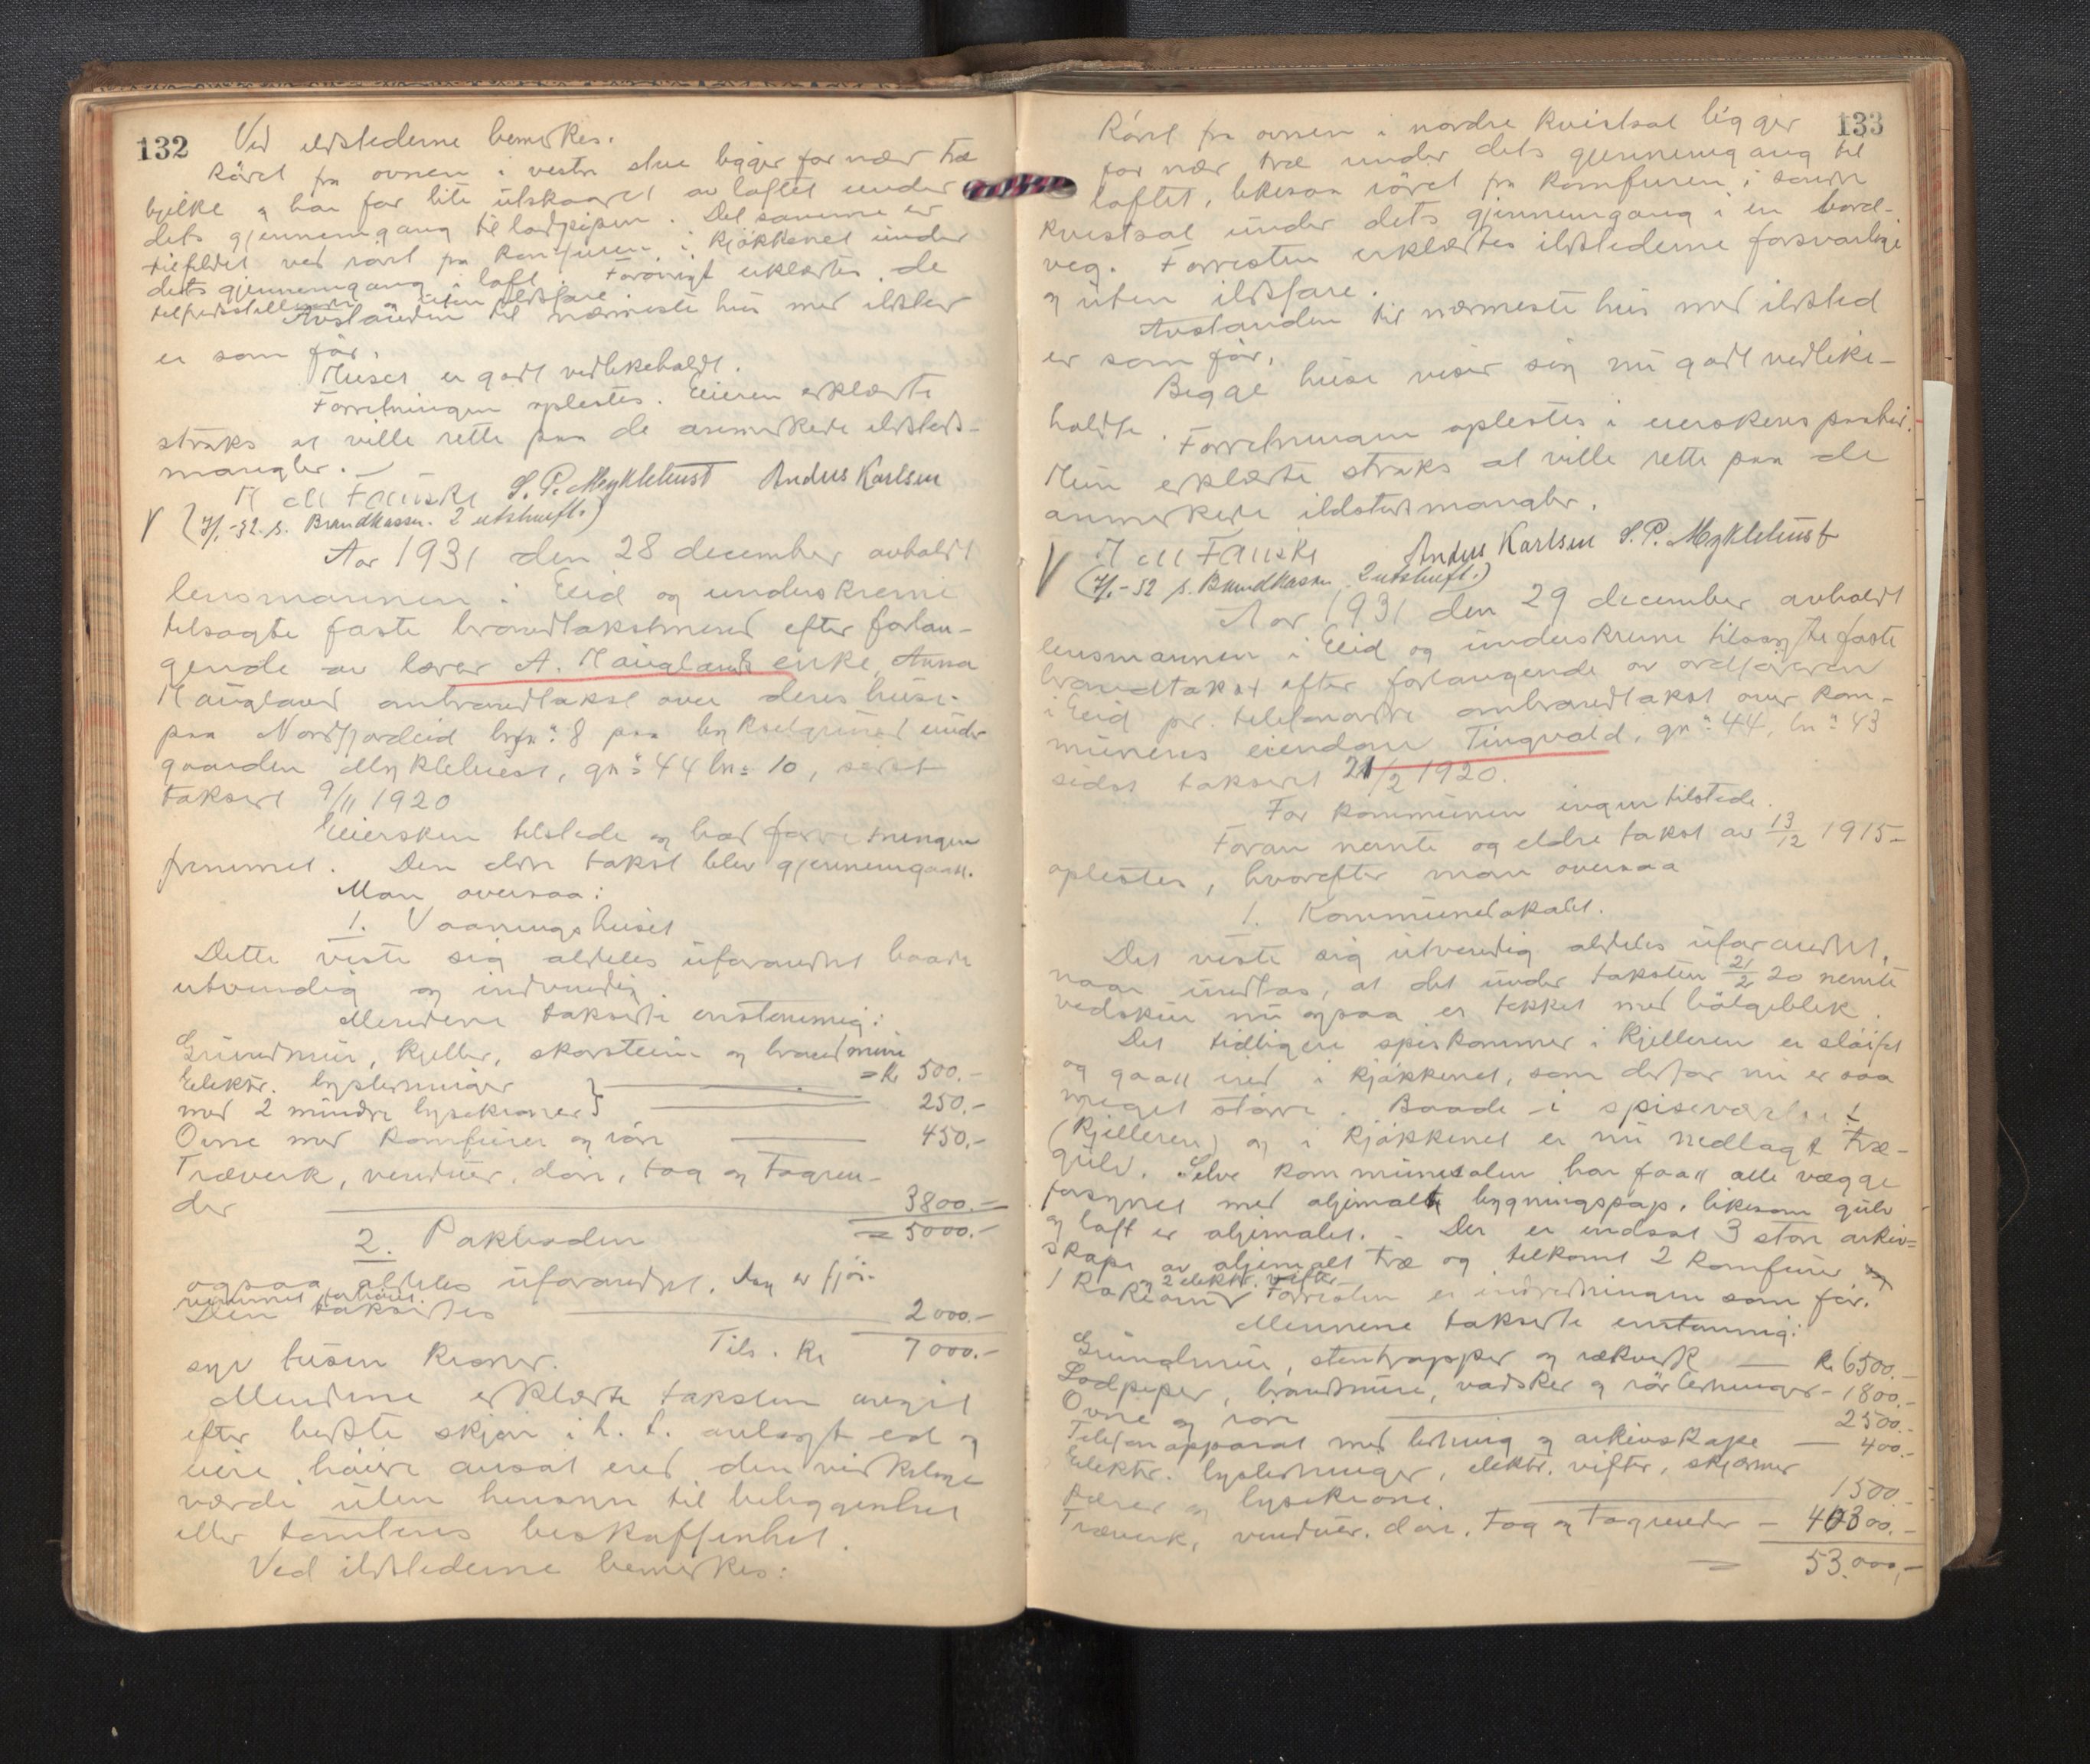 132
Ved ildstederne bemerkes.
Röret fra ovnen i vestre stue ligger for nær træ
bjelke og har for lite utskaaret av loftet under
dets gjennemgang til lodpipen. Det samme er
tilfeldet ved röret fra komfuren i kjökkenet under
dets gjennemgang i loft. Forövrigt erklærtes de
tilfredsstillende og uten ildsfare.
Avstanden til nærmeste hus med ildsted
er som för.
Huset er godt vedlikeholdt.
Forretningen oplestes. Eieren erklærte
straks at ville rette paa de anmerkede ildsteds-
mangler. —
M M Fauske S. P. Myklebust Anders Karlsen
V (7/1-32. s. Brandkassen. 2 utskrift.)
Aar 1931 den 28 december avholdt
lensmannen i Eid og underskrevne
tilsagte faste brandtakstmend efter forlan-
gende av lærer A. Hauglands enke, Anna
Haugland ombrandtakst over deres huse
paa Nordfjordeid brfn: 8 paa bykselgrund under
gaarden Myklebust, gn: 44 bn: 10, sidst
taksert 9/11 1920
Eiersken tilstede og bad forretningen
fremmet. Den eldre takst blev gjennemgaat.
Man oversaa:
1. Vaaningshuset
Dette viste sig aldeles uforandret baade
utvendig og indvendig.
Mendene takserte enstemmig:
Grundmur, kjeller, skorstein og brandmure
= Kr 500.-
Elektr. lysledninger
med 2 mindre lysekroner } 250.-
Ovne med komfurer og rör 450.-
Træverk, vinduer, döre, tag og tagren-
der 3800.-
= 5000.-
2. Pakboden
ogsaa aldeles uforandret. Den er fjös-
rummet forhöiet.
Den taksertes 2000.-
syv tusen kroner. Tils. Kr 7000.-
Mendene erklærte taksten avgit
efter bedste skjön i h. t. avlagt ed og
uten höiere ansat end den virkelige
værdi uten hensyn til beliggenhet
eller tomtens beskaffenhet.
Ved ildstederne bemerkes:
133
Röret fra ovnen i nordre kvistsal ligger
for nær træ under dets gjennemgang til
loftet, likesaa röret fra komfuren i söndre
kvistsal under dets gjennemgang i en bord-
veg. Forresten erklærtes ildstederne forsvarlige
og uten ildsfare.
Avstanden til nærmeste hus med ildsted
er som för.
Begge huse viser sig nu godt vedlike-
holdte.
Forretningen oplestes i eierskens paahör.
Hun erklærte straks at ville rette paa de
anmerkede ildstedsmangler.
M M Fauske Anders Karlsen S. P. Myklebust
V (7/1-32 s. Brandkassen, 2 utskrift.)
Aar 1931 den 29 december avholdt
lensmannen i Eid og underskrevne tilsagte faste
brandtakst efter forlangende av ordföreren
i Eid pr. telefonordre ombrandtakst over kom-
munens eiendom Tingvold, gn: 44, bn: 43
sidst taksert 21/2 1920.
For kommunen ingen tilstede.
Foran nevnte og eldre takst av 13/12 1915-
oplestes, hvorefter man oversaa
1. Kommunelokalet.
Det viste sig utvendig aldeles uforandret,
naar undtas, at det under taksten 21/2 20 nevnte
vedskur nu ogsaa er tekket med bölgeblik.
Det tidligere spiskammer i kjelleren er slöifet
og gaat ind i kjökkenet, som derfor nu er saa
meget större. Baade i spiseværelset
(kjelleren) og i kjökkenet er nu nedlagt træ-
gulv. Selve kommunesalen har faat alle vægge
forsynet med oljemalt bygningspap, likesom gulv
og loft er oljemalet. - Der er indsat 3 store arkiv-
skape av oljemalt træ og tilkomt 2 komfurer,
1 kakkelovn og 2 elektr. vifter. Forresten er indredningen som för.
Mennene takserte enstemmig:
Grundmur, stentrapper og rækverk — Kr 6500.-
Lodpiper, brandmure, vadsker og rörledninger - 1800.-
Ovne og rör 2500.-
Telefonapparat med ledning og arkivskape — 400.-
Elektr. lysledninger, elektr. vifter, skjermer
pærer og lysekrone. 1500.-
Træverk, vinduer, döre, tag og tagrender - 40300.-
= 53.000,-